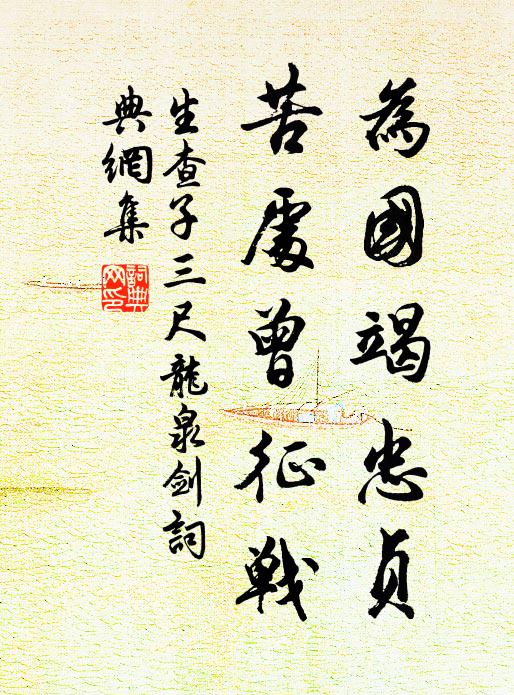 為國竭忠貞
苦處曾征戰
生查子三尺龍泉劍詞
典網集
詞典網印